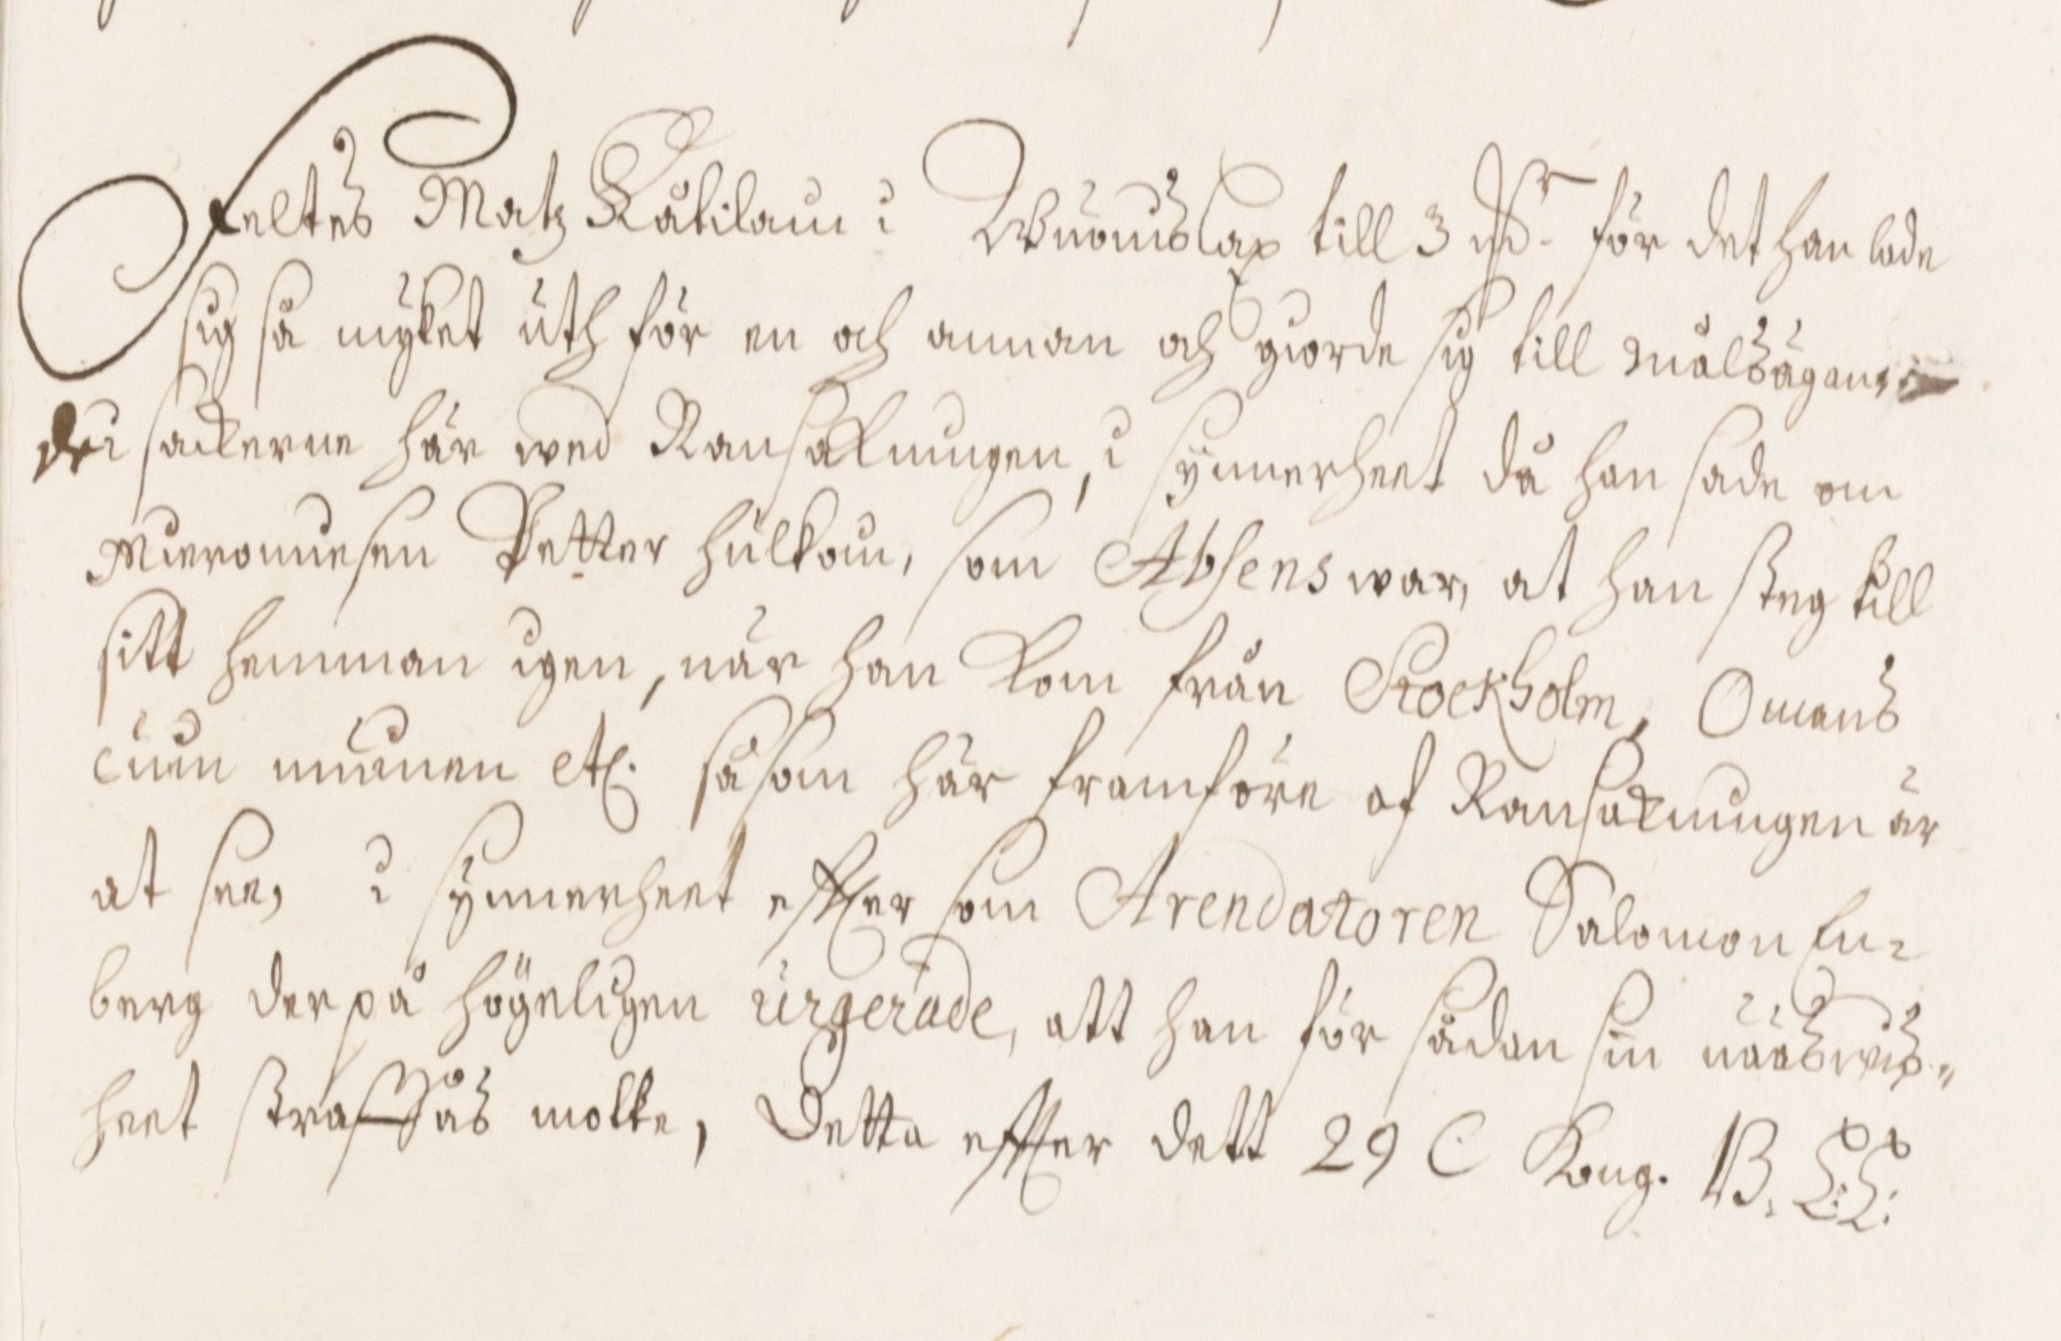 Feltes Matz Kåkilain i Wuomslax till 3 mkr för det han lade
sig så myket uth för en och annan och giorde sig till målsägan,
de i sakerne här wed Ransakningen, i synnerheet då han sade om
Mieromiesen Petter hulkoin, som Absens war, at han steg till
sitt hemman igen, när han kom från Stockholm, Omens
cuin muinen etc. såsom här framföre af Ransakningen är
at see, i synnerheet effter som Arendatoren Salomon En-
berg der på högeligen urgerade, att han för sådan sin näswijs-
heet straffas motte, Detta effter dett 29 C Kong. B. LL: